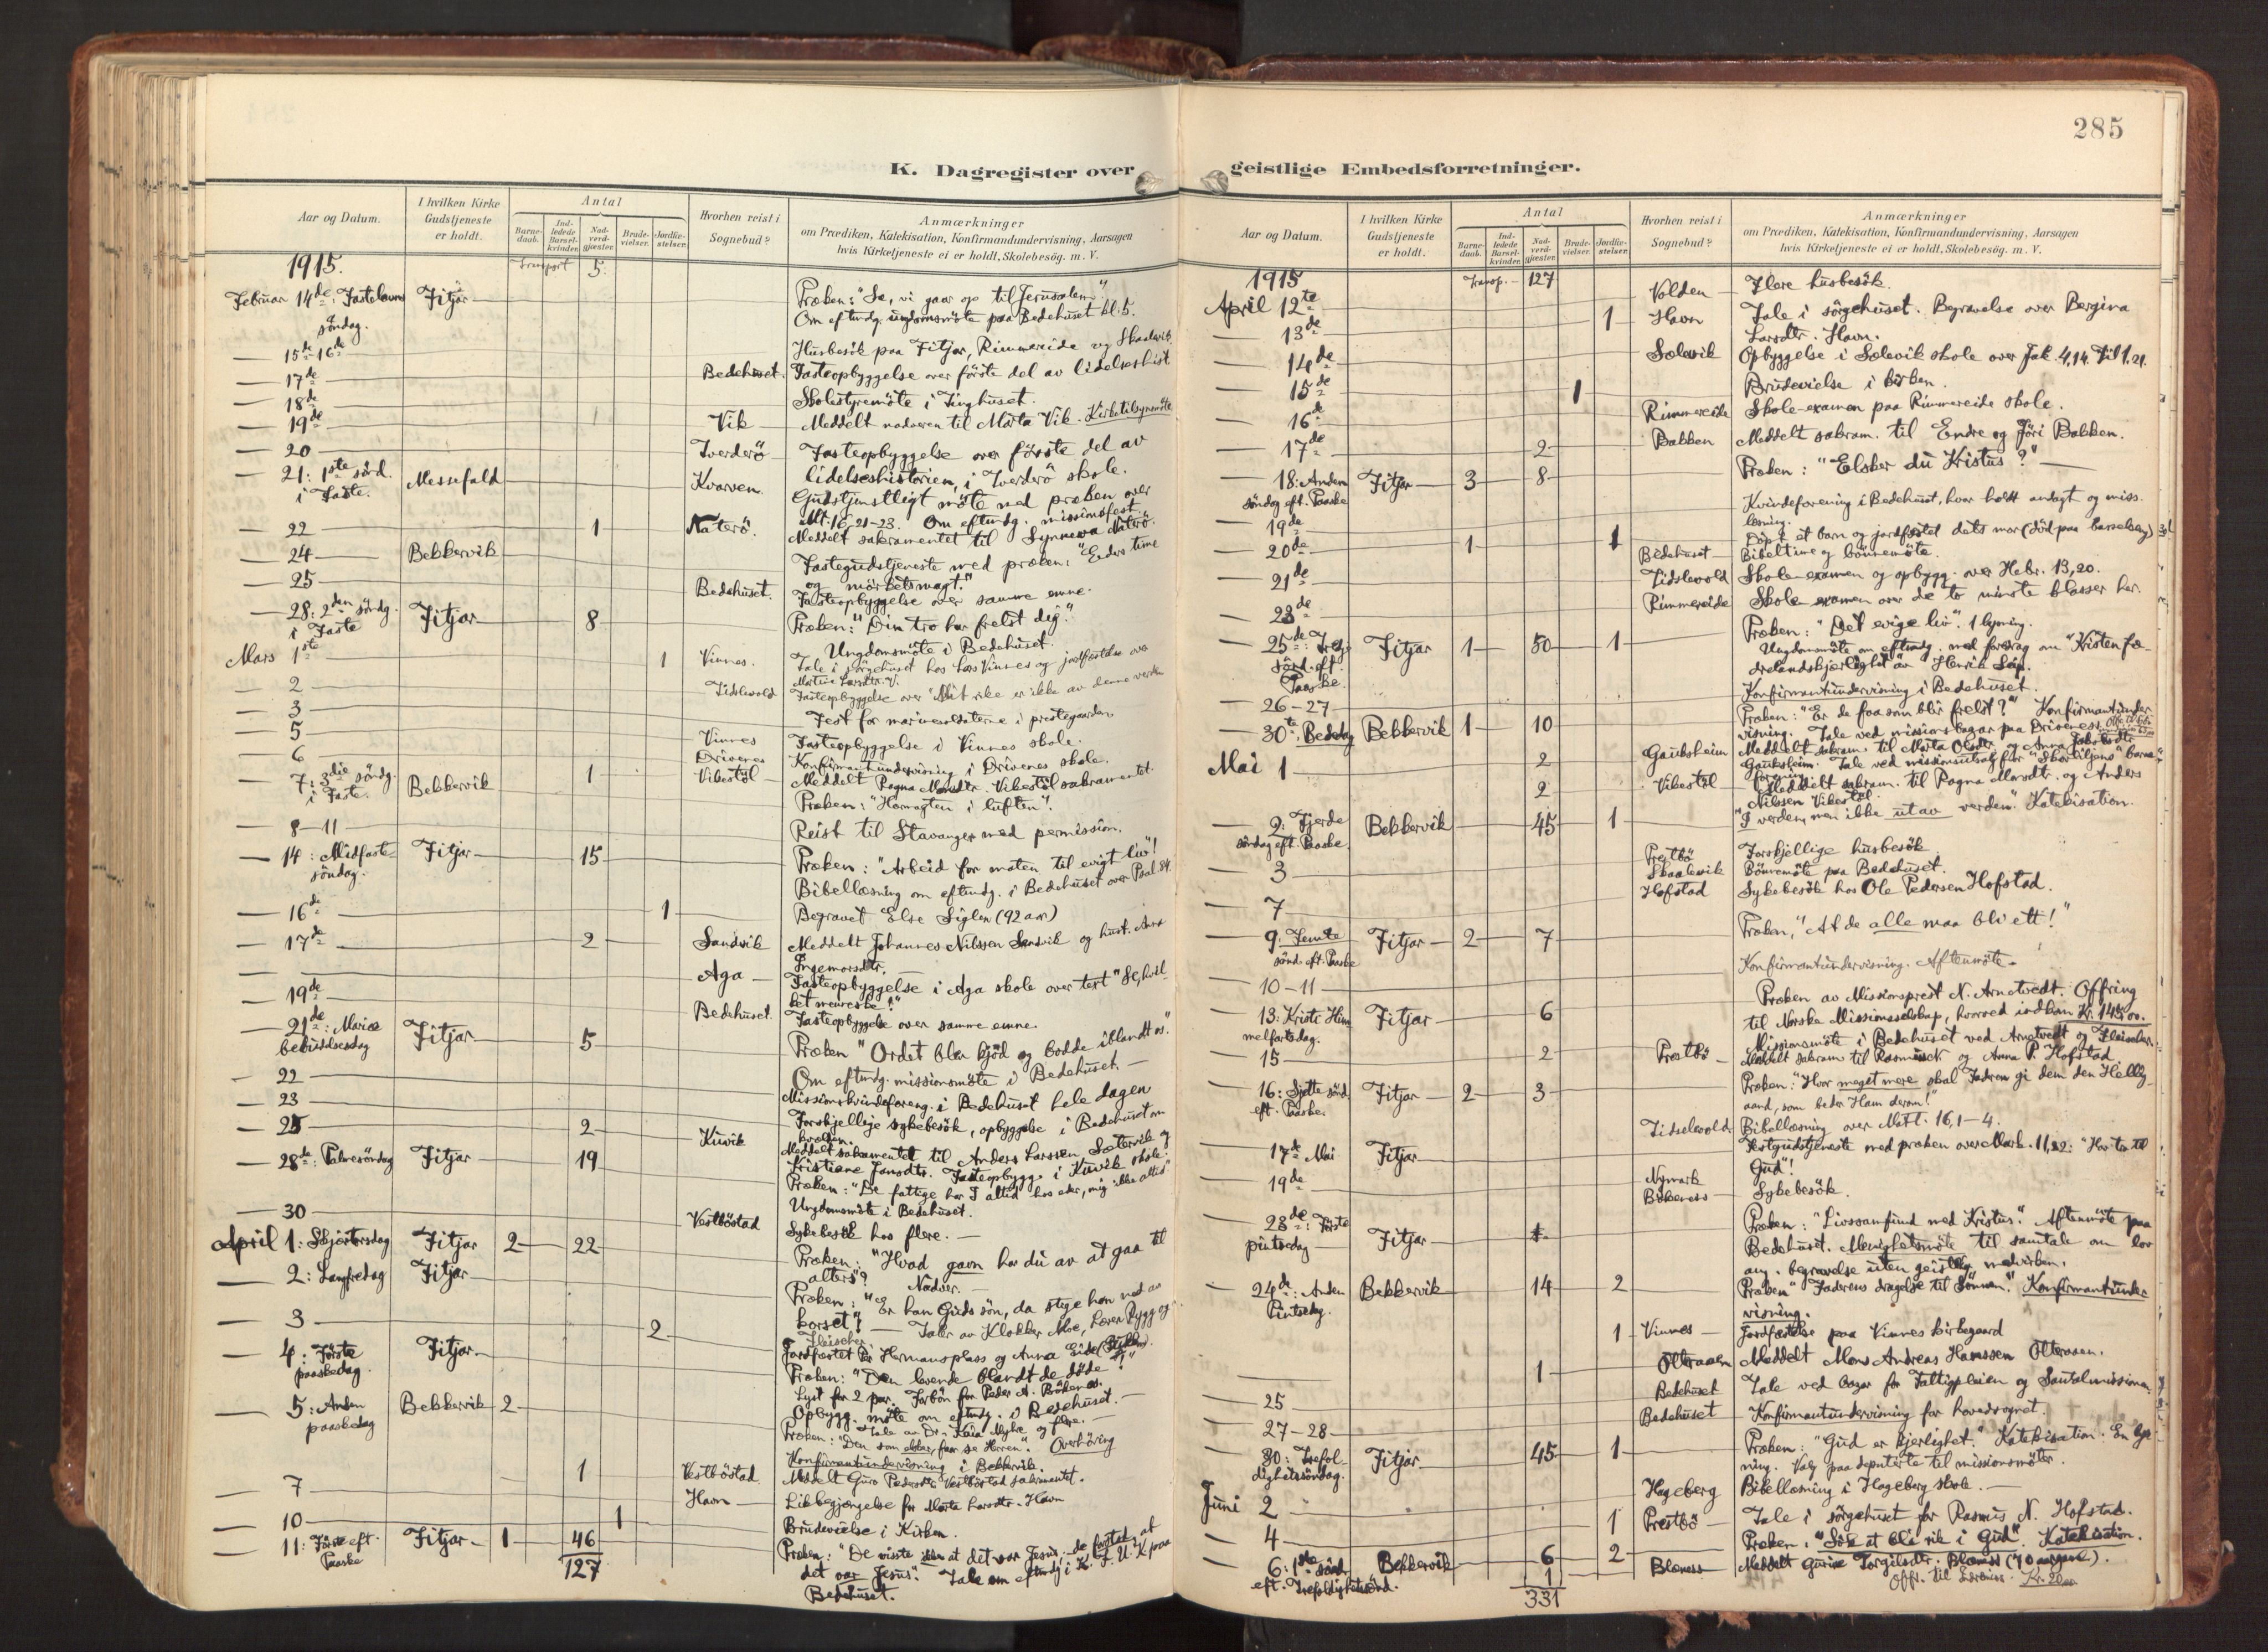 K. Dagregister over
Aar og Datum.
I hvilken Kirke Gudstjeneste er holdt.
Antal
Barnedaab.
Indledede Barselkvinder.
Nadverdgjæster.
Brudevielser.
Jordfæstelser.
Hvorhen reist i Sognebud?
Anmærkninger
om Prædiken, Katekisation, Konfirmandundervisning, Aarsagen
hvis Kirketjeneste ei er holdt, Skolebesøg. m. V.
1915. Transport 5.
Februar 14de: Fastelavns søndag. Fitjar Præken: "Se, vi gaar op til Jerusalem"
Om eftmdg. ungdomsmøte paa Bedehuset kl. 5.
15de-16de Husbesøk paa Fitjar, Rimmereide og Skaalevik
17de Bedehuset. Fasteopbyggelse over første del av lidelseshist
18de Skolestyremøte i Tinghuset.
19de Vik Meddelt nadveren til Marta Vik. Kirketilsynsmøte
20 Iverderö Fasteopbyggelse over første del av
lidelseshistorien, i Iverderö skole.
21: 1ste sönd. i Faste. Messefald Kvarven. Gudstjenstligt möte med præken over
Mt. 16, 21-23. Om eftmdg. missionsfest.
22 1 Naterö. Meddelt sakramentet til Synneva Naterö.
24 Bekkervik Fastegudstjeneste med præken: "Eders time
og mörkets magt."
25 Bedehuset. Fasteopbyggelse over samme emne.
28: 2den söndg. i Faste Fitjar 8 Præken: "Din tro har frelst dig."
Ungdomsmöte i Bedehuset.
Mars 1ste 1 Vinnes. Tale i sörgehuset hos Lars Vinnes og jordfæstelse over
Martha Larsdtr. V.
2 Tidslevold Fasteopbyggelse over "Mit rike er ikke av denne verden
3 Fest for marinesoldaterne i prestegaarden
5 Vinnes Fasteopbyggelse i Vinnes skole.
6 Drivenes Konfirmantundervisning i Drivenes skole.
7: 3die söndg. i Faste. Bekkervik 1 Vikestöl Meddelt Ragna Monsdtr. Vikestöl sakramentet.
Præken: "Hærmagten i luften".
8-11 Reist til Stavanger med permission.
14: Midfaste söndag. Fitjar 15 Præken: "Arbeid for maten til evigt liv"!
Bibellæsning om eftmdg. i Bedehuset over Psal. 84.
16de 1 Begravet Else Siglen (92 aar)
17de 2 Sandvik Meddelt Johannes Nilssen Sandvik og hust. Anna
Ingemorsdtr.
Aga Fasteopbyggelse i Aga skole over text "Se, hvil-
ket menneske!"
19de Bedehuset. Fasteopbyggelse over samme emne.
21de: Mariæ bebudelsesdag Fitjar 5 Præken "Ordet blev kjöd og bodde iblandt os."
Om eftmdg. missionsmöte i Bedehuset.
22
23 Missionskvindeforeng. i Bedehuset hele dagen
25 2 Kuvik Forskjellige sykebesök, opbyggelse i Bedehuset om
kvelden.
Meddelt sakramentet til Anders Larssen Sætervik og
28de: Palmesöndag Fitjar 19 Kristiane Jansdtr. Fasteopbygg. i Kuvik skole.
Præken: "De fattige har I altid hos eder, mig ikke altid"
Ungdomsmöte i Bedehuset.
30 Vestböstad Sykebesök hos flere.
April 1: Skjærtorsdag Fitjar 2 22 Præken: "Hvad gavn har du av at gaa til
alters"? Nadver.
2: Langfredag Fitjar Præken: "Er han Guds sön, da stige han ned av
korset"! Taler av Klokker Moe, lærer Rygg og
Fleischer
3 2 Jordfæstet Hermansplass og Anna Eide
4: Förste paaskedag. Fitjar Præken: "Den levende blandt de döde"!
Lyst for 2 par. Forbön for Peder A. Bökenes.
Opbygg. möte om eftmdg. i Bedehuset.
Tale av Dr. Kaia Myhre og flere.
5: Anden paaskedag Bekkervik 2 Præken: "Den som elsker, faar se Herren". Overhöring
Konfirmantundervisning i Bekkervik.
7 1 Vestböstad Meddelt Guro Pedersdtr. Vestböstad sakramentet.
Havn Likbegjængelse for Marta Larsdtr. Havn
10 1 Brudevielse i Kirken.
11: Förste eft. Paaske Fitjar 1 46 Præken: "De visste ikke at det var Jesus, de forstod, at
det var Jesus". Tale om eftmdg. i K. F. U. K paa
127 Bedehuset.
285
geistlige Embedsforretninger.
Aar og Datum.
I hvilken Kirke Gudstjeneste er holdt.
Antal
Barnedaab.
Indledede Barselkvinder.
Nadverdgjæster.
Brudevielser.
Jordfæstelser.
Hvorhen reist i Sognebud?
Anmærkninger
om Prædiken, Katekisation, Konfirmandundervisning, Aarsagen
hvis Kirketjeneste ei er holdt, Skolebesøg. m. V.
1915 Transp. 127
April 12te Volden Flere husbesök.
13de 1 Havn Tale i sörgehuset. Begravelse over Bergina
Larsdtr. Havn.
14de Sælevik Opbyggelse i Sælevik skole over Jak. 4,14. Fil 1,21.
15de 1 Brudevielse i kirken.
16de Rimmereide Skole-examen paa Rimmereide skole.
17de 2 Bakken Meddelt sakram. til Endre og Jöri Bakken.
18: Anden söndag eft. Paaske Fitjar 3 8 Præken: "Elsker du Kristus?"
19de Kvindeforening i Bedehuset, hvor holdt andagt og miss.
læsning.
20de 1 1 Döpt et barn og jordfæstet dets mor (död paa barselseng)
Bedehuset Bibeltime og bönnemöte.
21de Tidslevold Skole-examen og opbygg. over Hebr. 13,20.
23de Rimmereide Skole-examen over de to minste klasser her.
25de: Tredje sönd. eft. Paaske. Fitjar 1 50 1 Præken: "Det evige liv". 1 lysning.
Ungdomsmöte om eftmdg. med foredrag om "Kristen fæ-
drelandskjærlighet" av Henrik
26-27 Konfirmantundervisning i Bedehuset.
30te: Bededag Bekkervik 1 10 Præken: "Er de faa som blir frelst?" Konfirmantunder-
visning. Tale ved missionsbazar paa Drivenes.
Mai 1 2 Gauksheim Meddelt sakram. til Marta Olsdtr. og Anna Jakobsdtr.
Gauksheim. Tale ved missionsutsalg for barne-
forening.
2 Vikestöl Meddelt sakram. til Ragna Monsdtr. og Anders
Nilssen Vikestöl.
2: Fjerde söndag eft. Paaske. Bekkervik 45 1 "I verden, men ikke ut av verden." Katekisation.
3 Prestbö Forskjellige husbesök.
Skaalevik Bönnemöte paa Bedehuset.
7 Hofstad Sykebesök hos Ole Pedersen Hofstad.
9. Femte sönd. eft. Paaske Fitjar 2 7 Præken, "At de alle maa bli ett!"
10-11 Konfirmantundervisning. Aftenmöte.
13: Kristi Himmelfartsdag. Fitjar 6 Præken av Missionsprest N. Arnetvedt. Offring
til Norske Missionsselskap, hvorved indkom Kr. 145.00.
Missionsmöte i Bedehuset ved Arnetvedt og Fleischer.
15 2 Prestbö Meddelt sakram. til Rasmus N og Anna P. Hofstad
16: Sjette sönd. eft. Paaske. Fitjar 2 3 Præken: "Hvor meget mere skal Faderen gi dem den Hellig-
aand, som beder Ham derom!"
Tidselvold Bibellæsning over Matt. 16, 1-4.
17de Mai Fitjar Festgudstjeneste med præken over Mark. 11,22: "Hav tro til
Gud"!
19de Nymark
Bökenes Sykebesök.
23de: Förste pintsedag Fitjar Præken: "Livssamfund med Kristus." Aftenmöte paa
Bedehuset. Menighetsmöte til samtale om lov
ang. begravelse uten geistlig medvirken.
24de: Anden Pintsedag. Bekkervik 14 2 Præken "Faderens dragelse til Sönnen." Konfirmantunder-
visning.
1 Vinnes Jordfæstelse paa Vinnes kirkegaard
1 Olteraaen Meddelt Mons Andreas Hanssen Olteraaen.
25 Bedehuset Tale ved bazar for Fattigpleien og Santalmissionen.
27-28 Bedehuset Konfirmantundervisning for hovedsognet.
30: Trefoldighetssöndag. Fitjar 45 1 Præken: "Gud er kjerlighet." Katekisation. En lys-
ning. Valg paa deputerte til missionsmöter.
Juni 2 Hageberg Bibellæsning i Hageberg skole.
4 1 Prestbö Tale i sörgehuset for Rasmus N. Hofstad.
6: 1ste sönd. eft. Trefoldighetssönd. Bekkervik 6 2 Præken: "Sök at bli rik i Gud". Katekisation.
1 Blænes Meddelt Gurine Torgilsdtr. Blænes
Offr. til Kr. 20.00
331